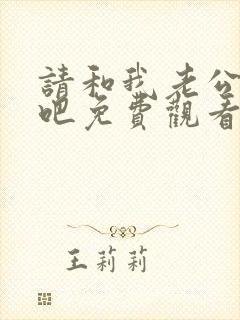 請和我老公
吧免費觀看
王莉莉